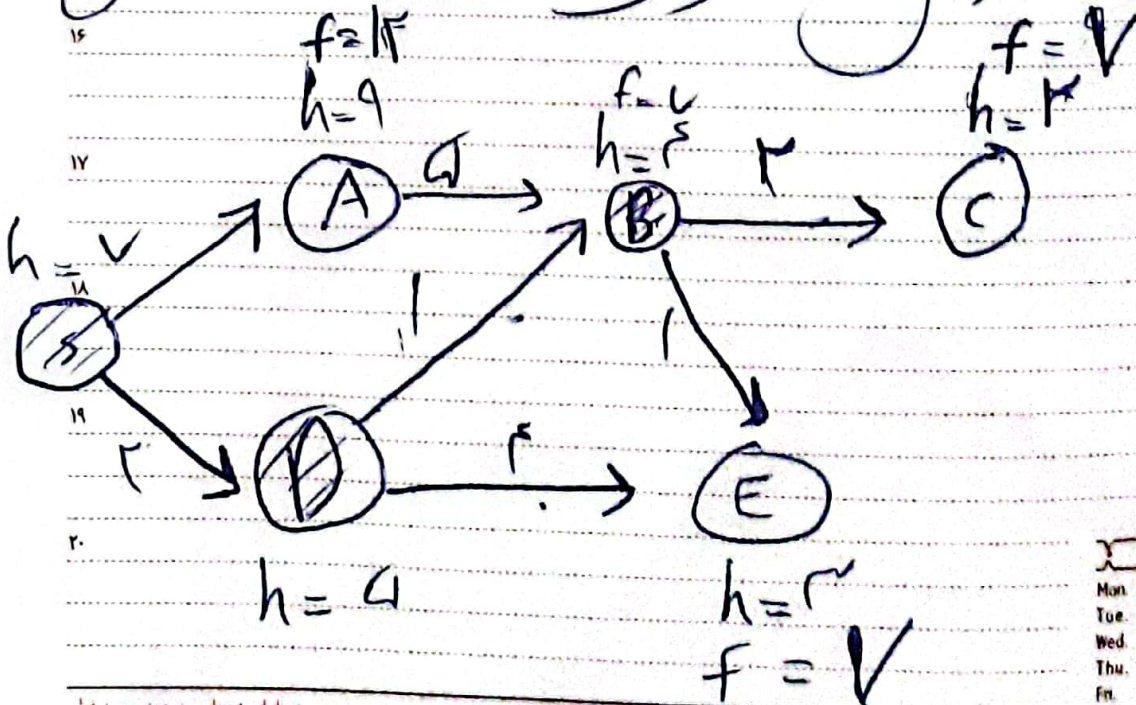 ۱۶
f = ۷
h = ۲
h = ۹
f = ۷
h = ۴
۱۷
A
۵
B
۲
C
h = ۷
۱۸
S
۱
۱
۱۹
۲
D
۴
E
۲۰
h = ۵
h = ۳
f = ۷
Mon.
Tue.
Wed.
Thu.
Fri.